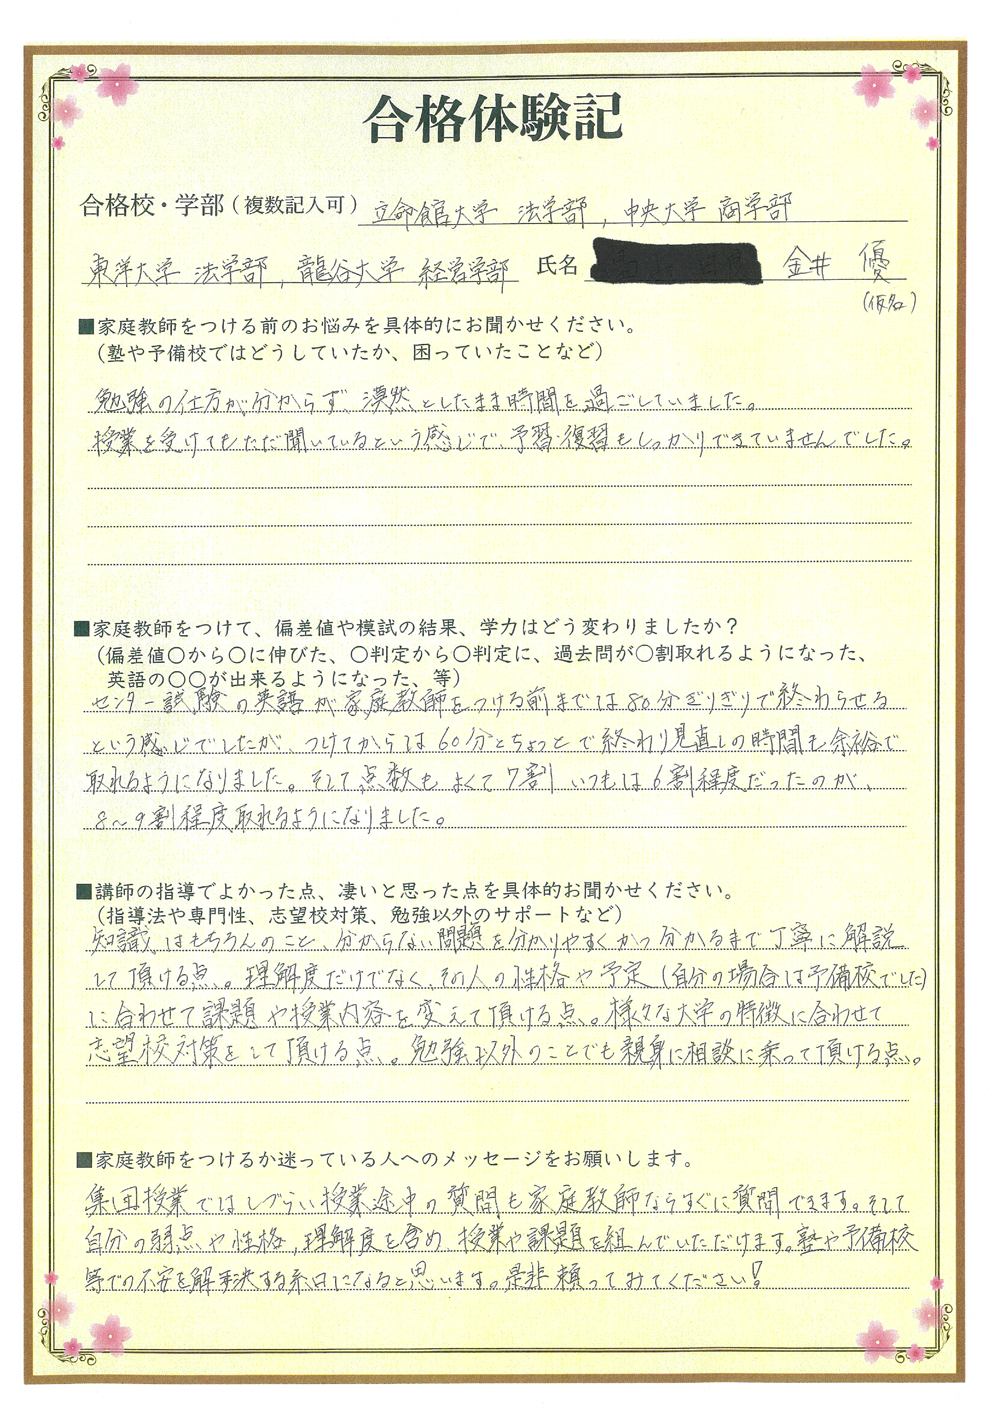 合格体験記
合格校・学部(複数記入可) 立命館大学 法学部, 中央大学 商学部
東洋大学 法学部, 龍谷大学 経営学部 氏名 金井 優
(仮名)
■家庭教師をつける前のお悩みを具体的にお聞かせください。
(塾や予備校ではどうしていたか、困っていたことなど)
勉強の仕方が分からず、漠然としたまま時間を過ごしていました。
授業を受けてもただ聞いているという感じで、予習・復習もしっかりできていませんでした。
■家庭教師をつけて、偏差値や模試の結果、学力はどう変わりましたか?
(偏差値〇から〇に伸びた、〇判定から〇判定に、過去問が〇割取れるようになった、
英語の〇〇が出来るようになった、等)
センター試験の英語が家庭教師をつける前までは80分ぎりぎりで終わらせる
という感じでしたが、つけてからは60分とちょっとで終わり見直しの時間も余裕で
取れるようになりました。そして点数もよくて7割 いつもは6割程度だったのが、
8〜9割程度取れるようになりました。
■講師の指導でよかった点、凄いと思った点を具体的お聞かせください。
(指導法や専門性、志望校対策、勉強以外のサポートなど)
知識はもちろんのこと、分からない問題を分かりやすくかつ分かるまで丁寧に解説
して頂ける点。理解度だけでなく、その人の性格や予定(自分の場合は予備校でした)
に合わせて課題や授業内容を変えて頂ける点。様々な大学の特徴に合わせて
志望校対策をして頂ける点。勉強以外のことでも親身に相談に乗って頂ける点。
■家庭教師をつけるか迷っている人へのメッセージをお願いします。
集団授業ではしづらい授業途中の質問も家庭教師ならすぐに質問できます。そして
自分の弱点や性格,理解度を含め授業や課題を組んでいただけます。塾や予備校
等での不安を解決する糸口になると思います。是非頼ってみてください!